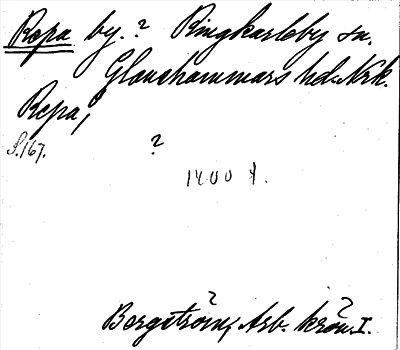 Repa by.? Ringkarleby sn.
Glanshammars hd. Nrk.
Repa,
S. 167. ?
1400 t.
? ?
Bergström, Arb. krön. I.